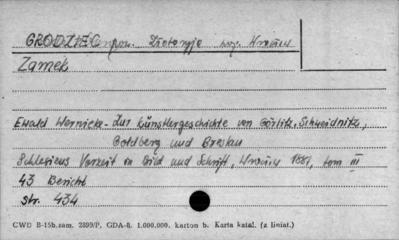 GRODZIEC pow. Złotoryja woj. Wrocław
Zamek
Ewald Wernicke - Zur Künstlergeschichte von Görlitz, Schweidnitz,
Goldberg und Breslau
Schlesiens Vorzeit in Bild und Schrift, Wrocław 1881, tom III
43 Bericht
str. 434
CWD B-15b. zam. 2899/P, GDA-8. 1.000.000. karton b. Karta katal. (z liniat.)